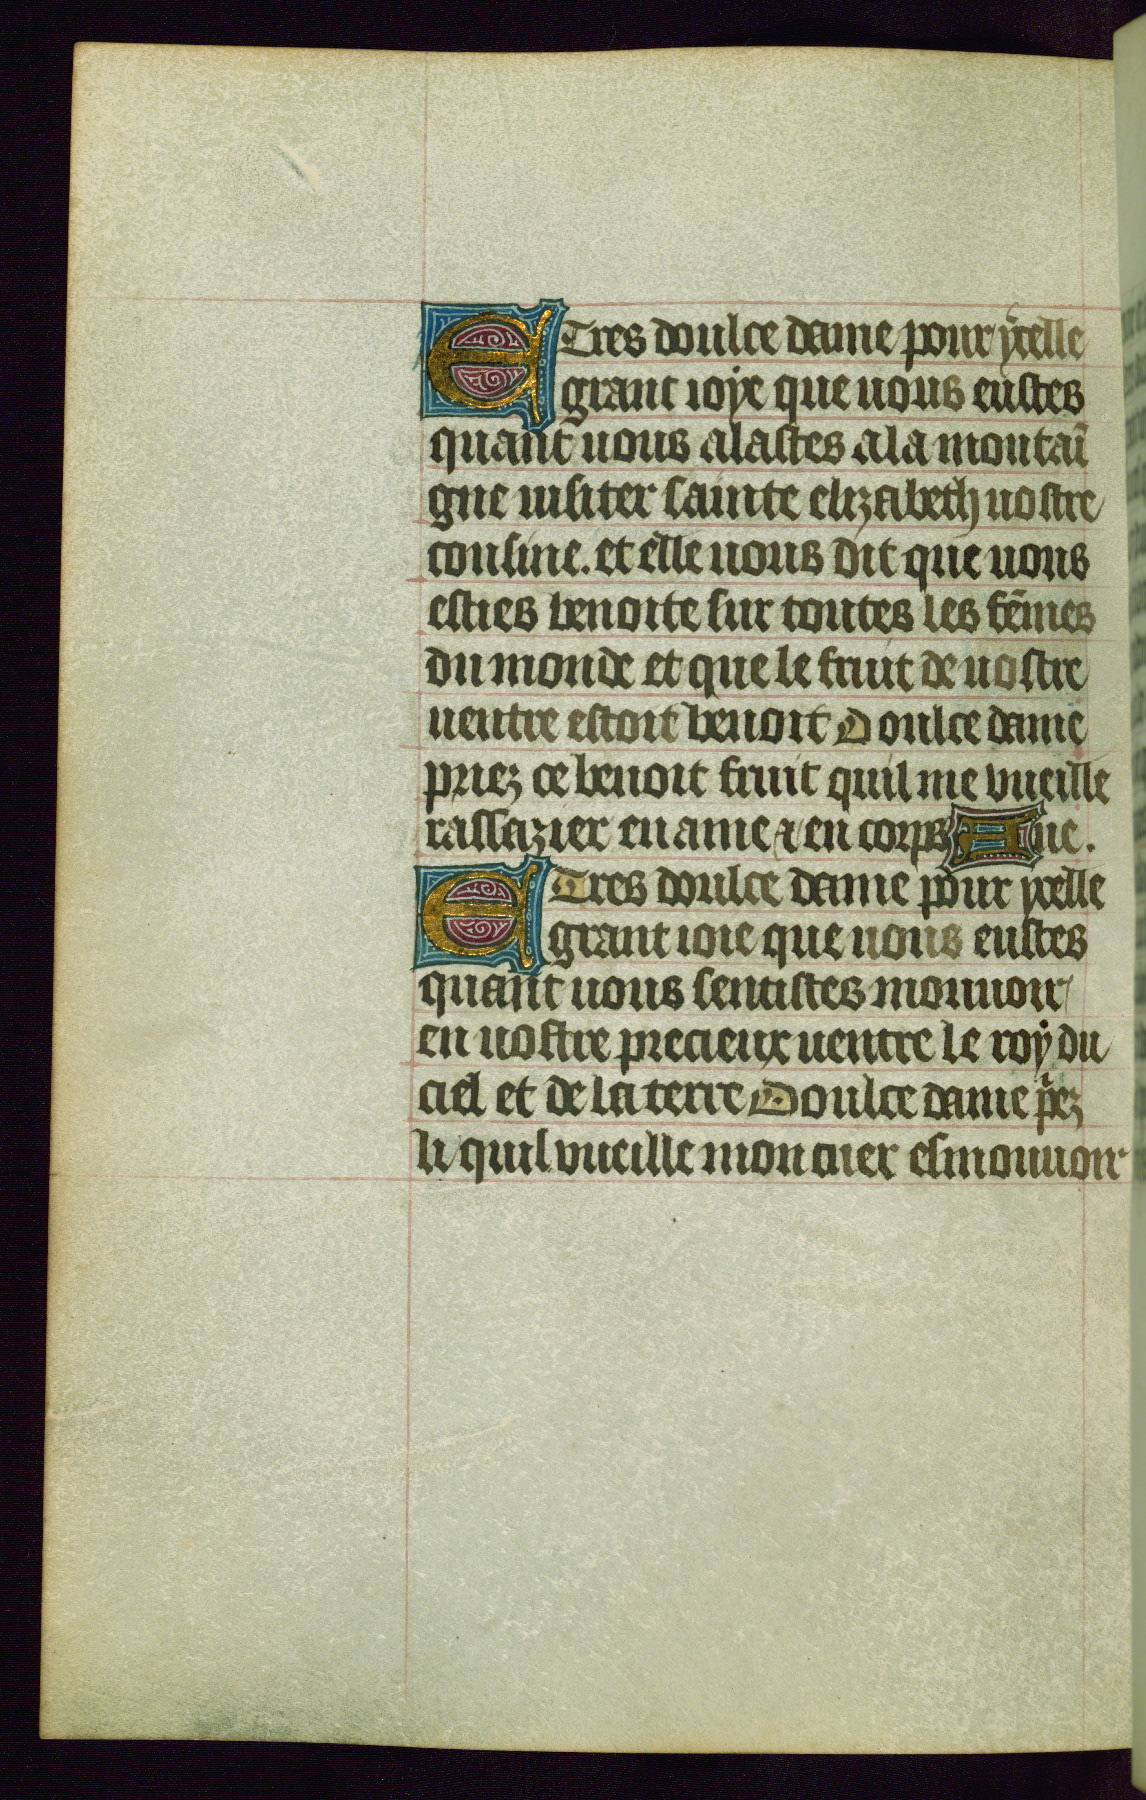 E Tres doulce dame pour ycelle
grant ioye que uous eustes
quant uous alastes a la montai
gne uisiter sainte elizabeth uostre
cousine. et elle uous dit que uous
esties benoite sur toutes les fẽmes
du monde et que le fruit de uostre
uentre estoit benoit Doulce dame
priez ce benoit fruit quil me vueille
rassazier en ame ⁊ en corps Aue.
E Tres doulce dame pour ycelle
grant ioie que uous eustes
quant uous sentistes mouuoir
en uostre precieux uentre le roy du
ciel et de la terre Doulce dame p̃ez
li quil vueille mon cuer esmouuoir